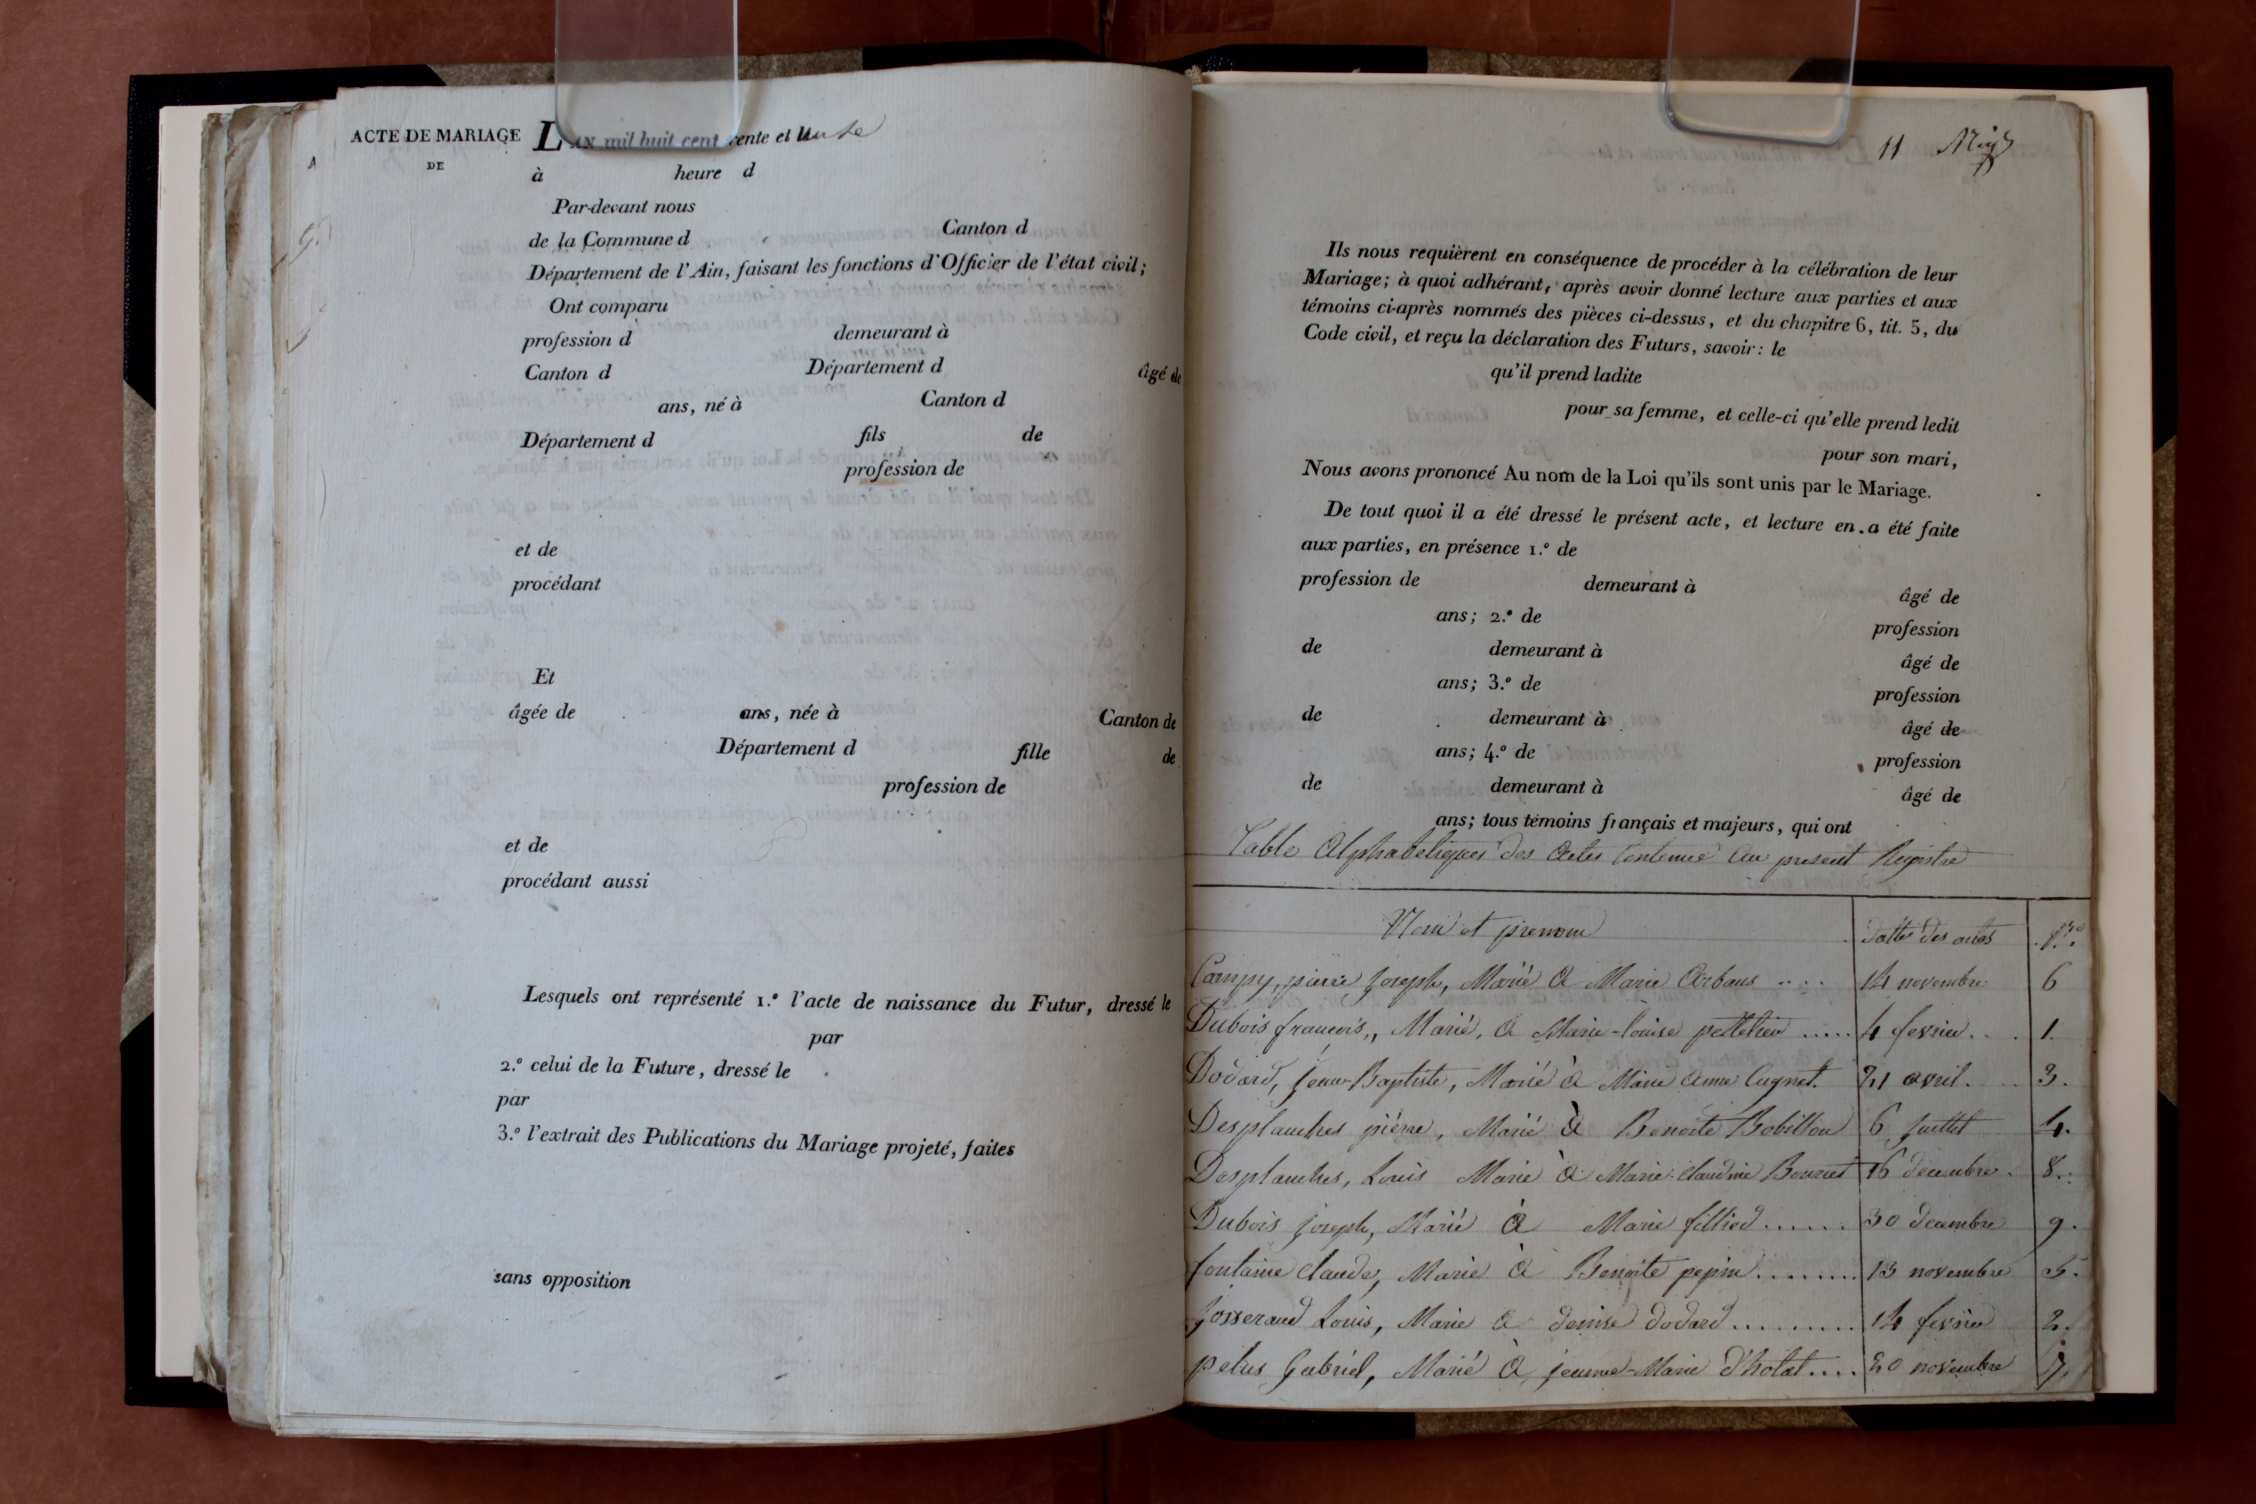 ACTE DE MARIAGE
DE
L'AN mil huit cent trente et
à heure d
Par-devant nous
de la Commune d Canton d
Département de l'Ain, faisant les fonctions d'Officier de l'état civil;
Ont comparu
profession d demeurant à
Canton d Département d âgé de
ans, né à Canton d
Département d fils de
profession de
et de
procédant
Et
âgée de ans, née à Canton de
Département d fille de
profession de
et de
procédant aussi
Lesquels ont représenté 1.° l'acte de naissance du Futur, dressé le
par
2.° celui de la Future, dressé le
par
3.° l'extrait des Publications du Mariage projeté, faites
sans opposition
11
Ils nous requièrent en conséquence de procéder à la célébration de leur
Mariage; à quoi adhérant, après avoir donné lecture aux parties et aux
témoins ci-après nommés des pièces ci-dessus, et du chapitre 6, tit. 5, du
Code civil, et reçu la déclaration des Futurs, savoir: le
qu'il prend ladite
pour sa femme, et celle-ci qu'elle prend ledit
pour son mari,
Nous avons prononcé Au nom de la Loi qu'ils sont unis par le Mariage.
De tout quoi il a été dressé le présent acte, et lecture en a été faite
aux parties, en présence 1.° de
profession de demeurant à âgé de
ans; 2.° de profession
de demeurant à âgé de
ans; 3.° de profession
de demeurant à âgé de
ans; 4.° de profession
de demeurant à âgé de
ans; tous témoins français et majeurs, qui ont
Table Alphabetiques des actes Contenue au present Registre
Nom et prenom datte des actes N.°
Campy, pierre Joseph, Marié à Marie Arbans .... 14 novembre 6
Dubois françois, Marié, à Marie-louise pelletier ..... 4 fevrier .. 1.
Dodard, Jean-Baptiste, Marié à Marie anne Cugnet. 21 avril. 3.
Desplanches pierre, Marié à Benoite Bobillon 6 Juillet 4.
Desplanches, Louis Marié à Marie-claudine Bonnet 16 decembre. 8.
Dubois Joseph, Marié à Marie filliod ...... 30 decembre 9.
fontaine Claude, Marié à Benoite pepin ........ 13 novembre 5.
Josserand Louis, Marié à denise dodard ......... 14 fevrier 2.
pelus Gabriel, Marié à jeanne-Marie d'hotal .... 20 novembre 7.